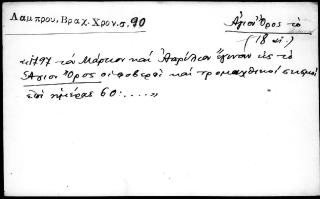 Λαμπρου, Βραχ. Χρον. σ. 90
Ἅγιον Ὄρος τὸ
(18 αἰ.)
τὸν Μάρτιον καὶ Ἀπρίλιον ἔγιναν εἰς τὸ
Ἅγιον Ὄρος οἱ φοβεροὶ καὶ τρομακτικοὶ σεισμοὶ
ἐπὶ ἡμέρας 60: ....»